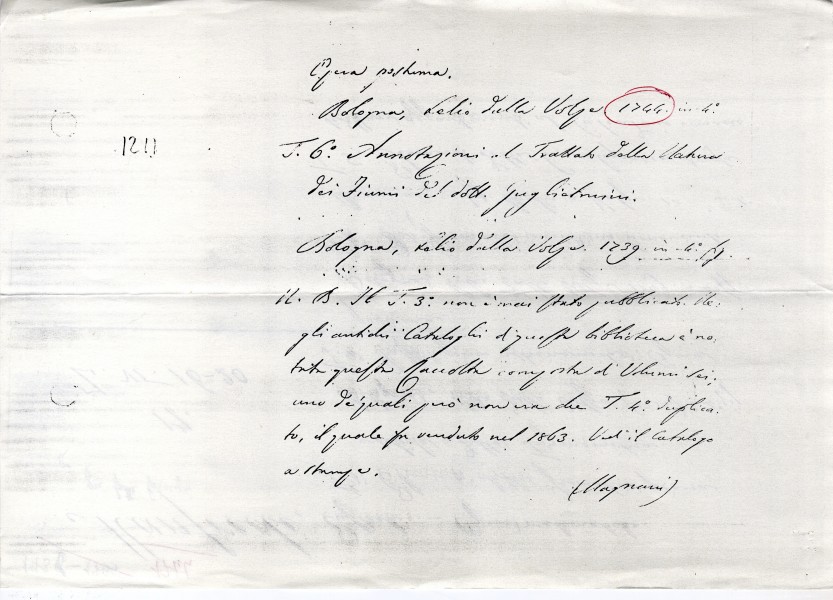 Opera postuma.
Bologna, Lelio dalla Volpe 1744. in 4.°
1211
T. 6.° Annotazioni al Trattato della Natura
dei Fiumi del dott. Guglielmini.
Bologna, Lelio dalla Volpe. 1739. in 4.° fig.
N. B. Il T. 3.° non è mai stato pubblicato. Ne,
gli antichi Cataloghi di questa biblioteca è no,
tata questa Raccolta composta di Volumi sei,
uno de' quali però non era che T. 4.° duplica,
to, il quale fu venduto nel 1863. Ved. il Catalogo
a stampa.
(Magnani)